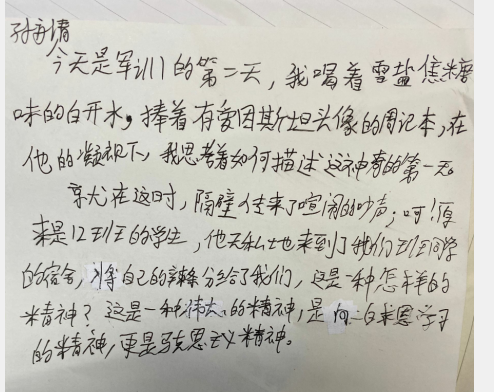 孙
今天是军训的第二天，我喝着雪盐焦糖
味的白开水，捧着有爱因斯坦头像的周记本，在
他的凝视下，我思考着如何描述这神奇的第一天。
就在这时，隔壁传来了喧闹的吵声；呵！原
来是12班的学生，他无私地来到了我们班同学
的宿舍，将自己的辣条分给了我们，这是一种怎样的
精神？这是一种伟大的精神，是向白求恩学习
的精神，更是马克思主义精神。